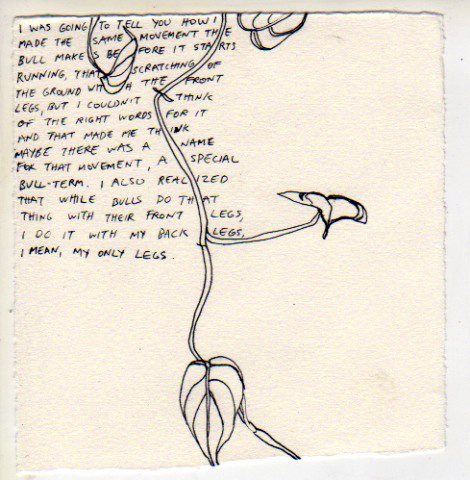 I WAS GOING TO TELL YOU HOW I
MADE THE SAME MOVEMENT THE
BULL MAKES BEFORE IT STARTS
RUNNING, THAT SCRATCHING OF
THE GROUND WITH THE FRONT
LEGS, BUT I COULDN'T THINK
OF THE RIGHT WORDS FOR IT
AND THAT MADE ME THINK
MAYBE THERE WAS A NAME
FOR THAT MOVEMENT, A SPECIAL
BULL-TERM. I ALSO REALIZED
THAT WHILE BULLS DO THAT
THING WITH THEIR FRONT LEGS,
I DO IT WITH MY BACK LEGS,
I MEAN, MY ONLY LEGS.